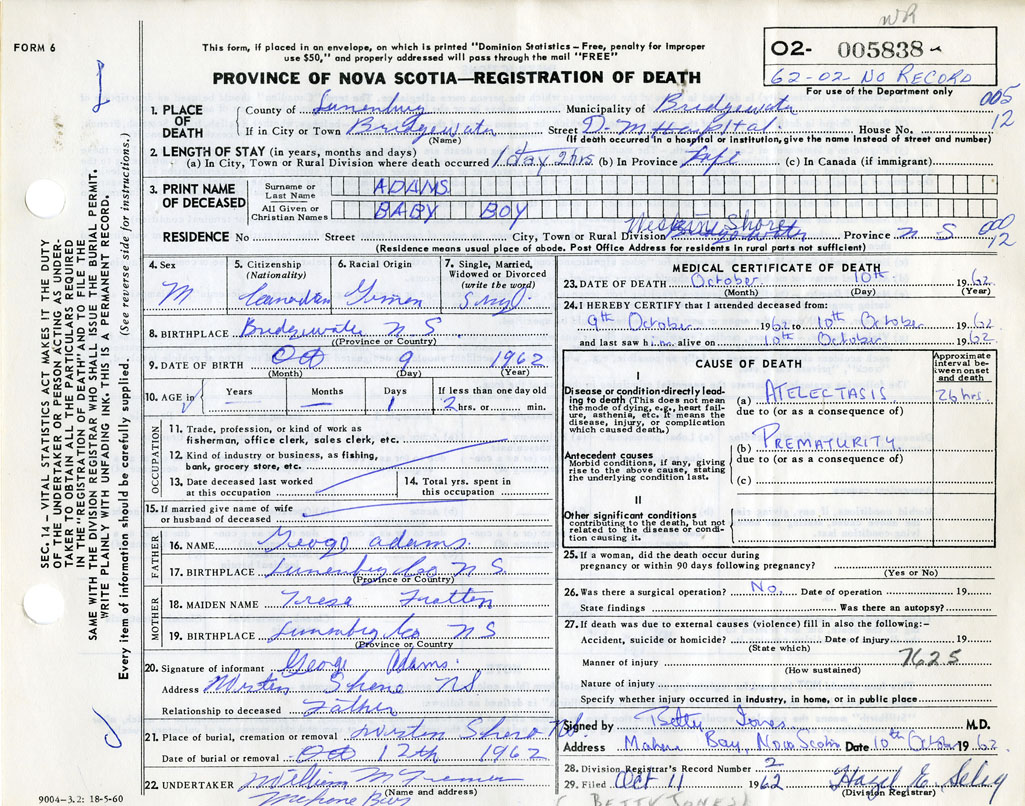 WR
FORM 6
This form, if placed in an envelope, on which is printed "Dominion Statistics – Free, penalty for improper
use $50," and properly addressed will pass through the mail "FREE"
02- 005838
62-02- NO RECORD
For use of the Department only
PROVINCE OF NOVA SCOTIA—REGISTRATION OF DEATH
005
12
1. PLACE OF DEATH
County of Lunenburg Municipality of Bridgewater
If in City or Town Bridgewater Street D-M Hospital. House No.
(Name) (If death occurred in a hospital or institution, give the name instead of street and number)
2. LENGTH OF STAY (in years, months and days)
(a) In City, Town or Rural Division where death occurred 1 day 2 hrs (b) In Province Life (c) In Canada (if immigrant)
3. PRINT NAME OF DECEASED
Surname or Last Name ADAMS
All Given or Christian Names BABY BOY
Western Shore
RESIDENCE No Street City, Town or Rural Division Bridgewater Province N S
000
12
(Residence means usual place of abode. Post Office Address for residents in rural parts not sufficient)
4. Sex
M
5. Citizenship
(Nationality)
Canadian
6. Racial Origin
German
7. Single, Married, Widowed or Divorced
(write the word)
Single
8. BIRTHPLACE Bridgewater N S.
(Province or Country)
9. DATE OF BIRTH Oct 9 1962
(Month) (Day) (Year)
10. AGE in Years — Months — Days 1 If less than one day old 2 hrs. or min.
OCCUPATION
11. Trade, profession, or kind of work as
fisherman, office clerk, sales clerk, etc.
12. Kind of industry or business, as fishing,
bank, grocery store, etc.
13. Date deceased last worked
at this occupation
14. Total yrs. spent in
this occupation
15. If married give name of wife
or husband of deceased
FATHER
16. NAME George Adams.
17. BIRTHPLACE Lunenburg Co N S.
(Province or Country)
MOTHER
18. MAIDEN NAME Teresa
19. BIRTHPLACE Lunenburg Co N S
(Province or Country
20. Signature of informant George Adams.
Address Western Shore NS
Relationship to deceased Father
21. Place of burial, cremation or removal Western Shore NS
Date of burial or removal Oct 12th 1962
22. UNDERTAKER William M
(Name and address)
9004—3.2: 18-5-60
MEDICAL CERTIFICATE OF DEATH
23. DATE OF DEATH October 10th 1962
(Month) (Day) (Year)
24. I HEREBY CERTIFY that I attended deceased from:
9th October 1962 to 10th October 1962
and last saw him alive on 10th October 1962
CAUSE OF DEATH
Approximate interval between onset and death
I
Disease or condition directly leading to death (This does not mean
the mode of dying, e.g., heart failure, asthenia, etc. It means the
disease, injury, or complication
which caused death.)
(a) ATELECTASIS 26 hrs.
due to (or as a consequence of)
Antecedent causes
Morbid conditions, if any, giving
rise to the above cause, stating
the underlying condition last.
(b) PREMATURITY.
due to (or as a consequence of)
(c)
II
Other significant conditions
contributing to the death, but not
related to the disease or condition causing it.
25. If a woman, did the death occur during
pregnancy or within 90 days following pregnancy?
(Yes or No)
26. Was there a surgical operation? No. Date of operation 19
State findings Was there an autopsy?
27. If death was due to external causes (violence) fill in also the following:–
Accident, suicide or homicide? Date of injury 19
(State which)
Manner of injury 7625
(How sustained)
Nature of injury
Specify whether injury occurred in industry, in home, or in public place
Signed by Betty Jones M.D.
Address Mahone Bay, Nova Scotia Date 10th October 1962
28. Division Registrar's Record Number 2
29. Filed Oct 11 1962 Hazel E. Seley
(Division Registrar)
( BETTY JONES )
SEC. 14 – VITAL STATISTICS ACT MAKES IT THE DUTY
OF THE UNDERTAKER OR PERSON ACTING AS UNDERTAKER TO OBTAIN ALL THE PARTICULARS REQUIRED
IN THE "REGISTRATION OF DEATH" AND TO FILE THE
SAME WITH THE DIVISION REGISTRAR WHO SHALL ISSUE THE BURIAL PERMIT.
WRITE PLAINLY WITH UNFADING INK. THIS IS A PERMANENT RECORD.
Every item of information should be carefully supplied. (See reverse side for instructions.)